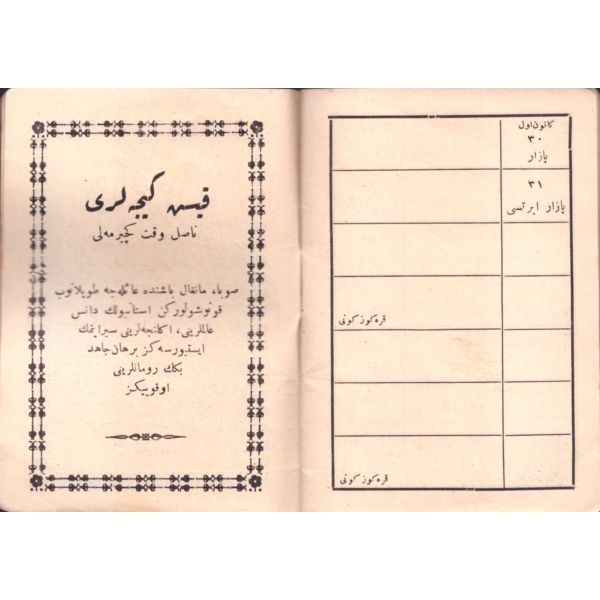 قیش كیجه‌لری
ناصل وقت كچیرمه‌لی
صوبا، مانغال باشنده عائله‌جه طوپلانوب
قونوشولوركن استانبولك دانس
عالملرینی، اكلنجه‌لرینی سیر ایتمك
ایستیورسه‌كز برهان جاهد
بكك رومانلرینی
اوقوییكز
كانون اول
٣٠
پازار
٣١
پازار ایرتسی
قره كوز كونی
قره كوز كونی